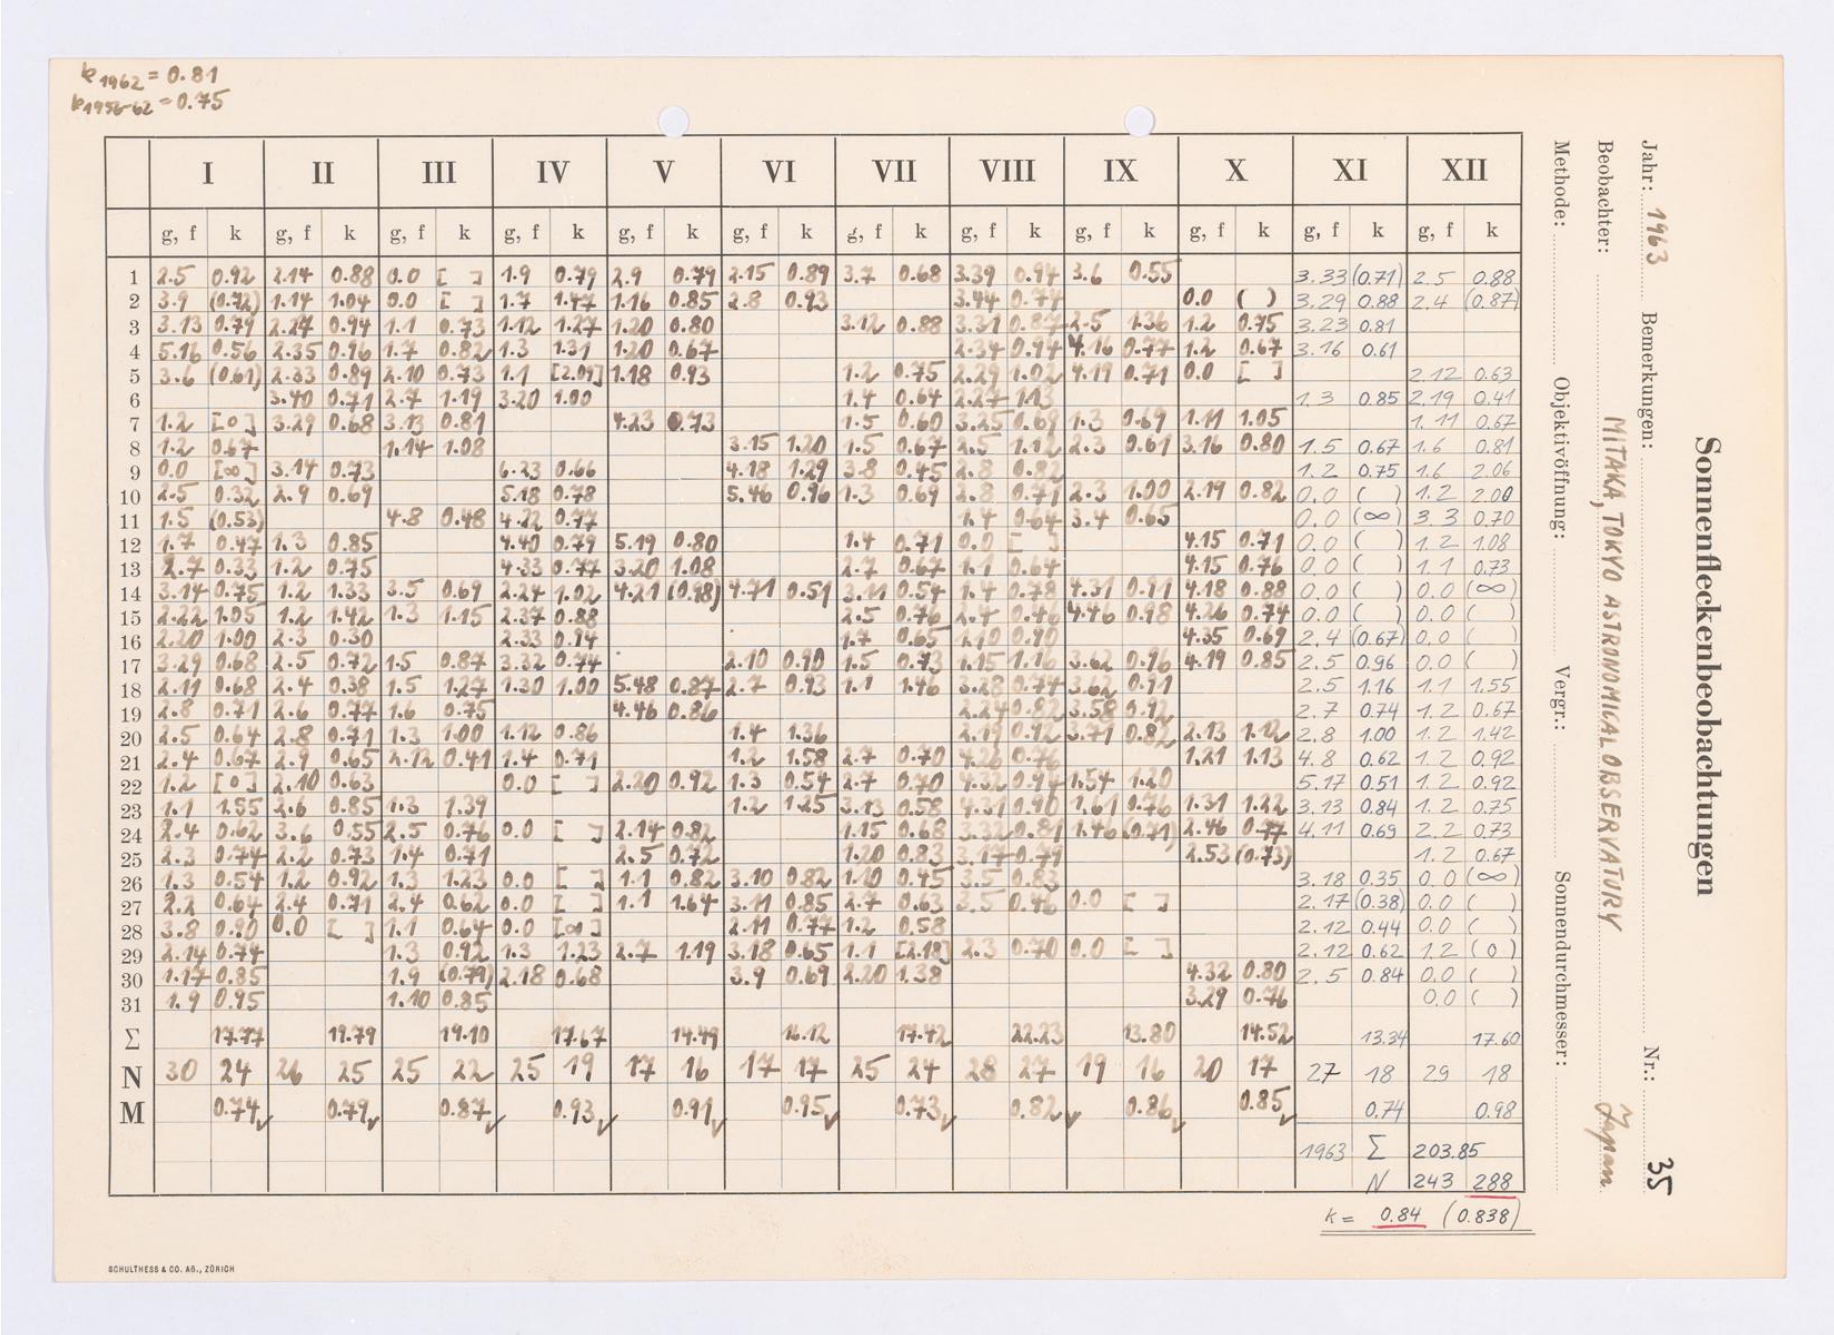 k1962 = 0.81
k1956-62 = 0.75
I II III IV V VI VII VIII IX X XI XII
g, f k g, f k g, f k g, f k g, f k g, f k g, f k g, f k g, f k g, f k g, f k g, f k
1 2.5 0.92 2.14 0.88 0.0 [ ] 1.9 0.79 2.9 0.79 2.15 0.89 3.7 0.68 3.39 0.94 3.6 0.55 3.33 (0.71) 2.5 0.88
2 3.9 (0.72) 1.14 1.04 0.0 [ ] 1.7 1.47 1.16 0.85 2.8 0.93 3.44 0.74 0.0 ( ) 3.29 0.88 2.4 (0.87)
3 3.13 0.79 2.27 0.94 1.1 0.73 1.12 1.27 1.20 0.80 3.12 0.88 3.31 0.87 2.5 1.36 1.2 0.75 3.23 0.81
4 5.16 0.56 2.35 0.96 1.7 0.82 1.3 1.31 1.20 0.67 2.34 0.94 4.16 0.77 1.2 0.67 3.16 0.61
5 3.6 (0.61) 2.33 0.89 2.10 0.73 1.1 [2.09] 1.18 0.93 1.2 0.75 2.29 1.02 4.19 0.71 0.0 [ ] 2.12 0.63
6 3.40 0.71 2.7 1.19 3.20 1.00 1.4 0.64 2.27 1.13 1.3 0.85 2.19 0.41
7 1.2 [0] 3.29 0.68 3.13 0.81 4.23 0.73 1.5 0.60 3.25 0.69 1.3 0.69 1.11 1.05 1.11 0.67
8 1.2 0.67 1.14 1.08 3.15 1.20 1.5 0.67 2.5 1.12 2.3 0.61 3.16 0.80 1.5 0.67 1.6 0.81
9 0.0 [∞] 3.14 0.73 6.23 0.66 4.18 1.29 3.8 0.45 2.8 0.82 1.2 0.75 1.6 2.06
10 2.5 0.32 2.9 0.69 5.18 0.78 5.46 0.96 1.3 0.69 2.8 0.71 2.3 1.00 2.19 0.82 0.0 ( ) 1.2 2.00
11 1.5 (0.53) 4.8 0.48 4.22 0.77 1.4 0.64 3.4 0.65 0.0 (∞) 3.3 0.70
12 1.7 0.47 1.3 0.85 4.40 0.79 5.19 0.80 1.4 0.71 0.0 [ ] 4.15 0.71 0.0 ( ) 1.2 1.08
13 2.7 0.33 1.2 0.75 4.33 0.77 3.20 1.08 2.7 0.67 1.1 0.64 4.15 0.76 0.0 ( ) 1.1 0.73
14 3.14 0.75 1.2 1.33 3.5 0.69 2.24 1.02 4.21 (0.98) 4.71 0.51 3.11 0.54 1.4 0.78 4.31 0.91 4.18 0.88 0.0 ( ) 0.0 (∞)
15 2.22 1.05 1.2 1.42 1.3 1.15 2.37 0.88 2.5 0.76 2.4 0.46 4.46 0.98 4.26 0.74 0.0 ( ) 0.0 ( )
16 2.20 1.00 2.3 0.30 2.33 0.94 1.7 0.65 1.10 0.90 4.35 0.69 2.4 (0.67) 0.0 ( )
17 3.29 0.68 2.5 0.72 1.5 0.87 3.32 0.74 2.10 0.90 1.5 0.73 1.15 1.16 3.62 0.96 4.19 0.85 2.5 0.96 0.0 ( )
18 2.11 0.68 2.4 0.38 1.5 1.27 1.30 1.00 5.48 0.87 2.7 0.93 1.1 1.46 3.28 0.74 3.62 0.91 2.5 1.16 1.1 1.55
19 2.8 0.71 2.6 0.77 1.6 0.75 4.46 0.86 2.24 0.82 3.58 0.92 2.7 0.74 1.2 0.67
20 2.5 0.64 2.8 0.71 1.3 1.00 1.12 0.86 1.4 1.36 2.19 0.92 3.71 0.82 2.13 1.12 2.8 1.00 1.2 1.42
21 2.4 0.67 2.9 0.65 2.12 0.41 1.4 0.71 1.2 1.58 2.7 0.70 4.26 0.76 1.21 1.13 4.8 0.62 1.2 0.92
22 1.2 [0] 2.10 0.63 0.0 [ ] 2.20 0.92 1.3 0.54 2.7 0.70 4.32 0.94 1.54 1.20 5.17 0.51 1.2 0.92
23 1.1 1.55 2.6 0.85 1.3 1.39 1.2 1.25 3.13 0.58 4.31 0.90 1.61 0.76 1.31 1.22 3.13 0.84 1.2 0.75
24 2.4 0.62 3.6 0.55 2.5 0.76 0.0 [ ] 2.14 0.82 1.15 0.68 3.32 0.81 1.46 (0.71) 2.46 0.77 4.11 0.69 2.2 0.73
25 2.3 0.74 2.2 0.73 1.4 0.71 2.5 0.72 1.20 0.83 3.17 0.79 2.53 (0.73) 1.2 0.67
26 1.3 0.54 1.2 0.92 1.3 1.23 0.0 [ ] 1.1 0.82 3.10 0.82 1.10 0.45 3.5 0.83 3.18 0.35 0.0 (∞)
27 2.2 0.64 2.4 0.71 2.4 0.62 0.0 [ ] 1.1 1.64 3.11 0.85 2.7 0.63 3.5 0.46 0.0 [ ] 2.17 (0.38) 0.0 ( )
28 3.8 0.90 0.0 [ ] 1.1 0.64 0.0 [∞] 2.11 0.77 1.2 0.58 2.12 0.44 0.0 ( )
29 2.14 0.74 1.3 0.92 1.3 1.23 2.7 1.19 3.18 0.65 1.1 [2.18] 2.3 0.70 0.0 [ ] 2.12 0.62 1.2 (0)
30 1.17 0.85 1.9 (0.79) 2.18 0.68 3.9 0.69 2.20 1.38 4.32 0.80 2.5 0.84 0.0 ( )
31 1.9 0.95 1.10 0.85 3.29 0.76 0.0 ( )
Σ 17.77 19.79 19.10 17.67 14.49 16.12 17.42 22.23 13.80 14.52 13.34 17.60
N 30 24 26 25 25 22 25 19 17 16 17 17 25 24 28 27 19 16 20 17 27 18 29 18
M 0.74 0.79 0.87 0.93 0.91 0.95 0.73 0.82 0.86 0.85 0.74 0.98
1963 Σ 203.85
N 243 288
k = 0.84 (0.838)
SCHULTHESS & CO. AG., ZÜRICH
Sonnenfleckenbeobachtungen
Jahr: 1963 Bemerkungen: Nr.: 35
Beobachter: MITAKA, TOKYO ASTRONOMICAL OBSERVATORY Japan
Methode: Objektivöffnung: Vergr.: Sonnendurchmesser: